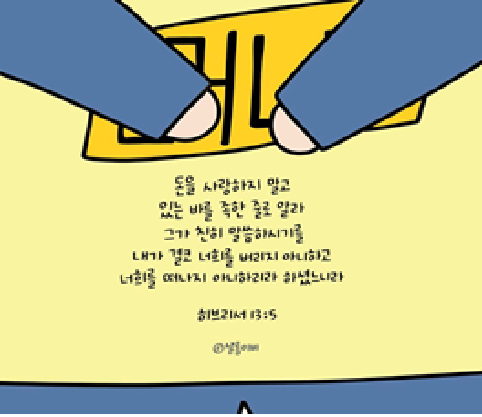 돈을 사랑하지 말고
있는 바를 족한 줄로 알라
그가 친히 말씀하시기를
내가 결코 너희를 버리지 아니하고
너희를 떠나지 아니하리라 하셨느니라
히브리서 13:5